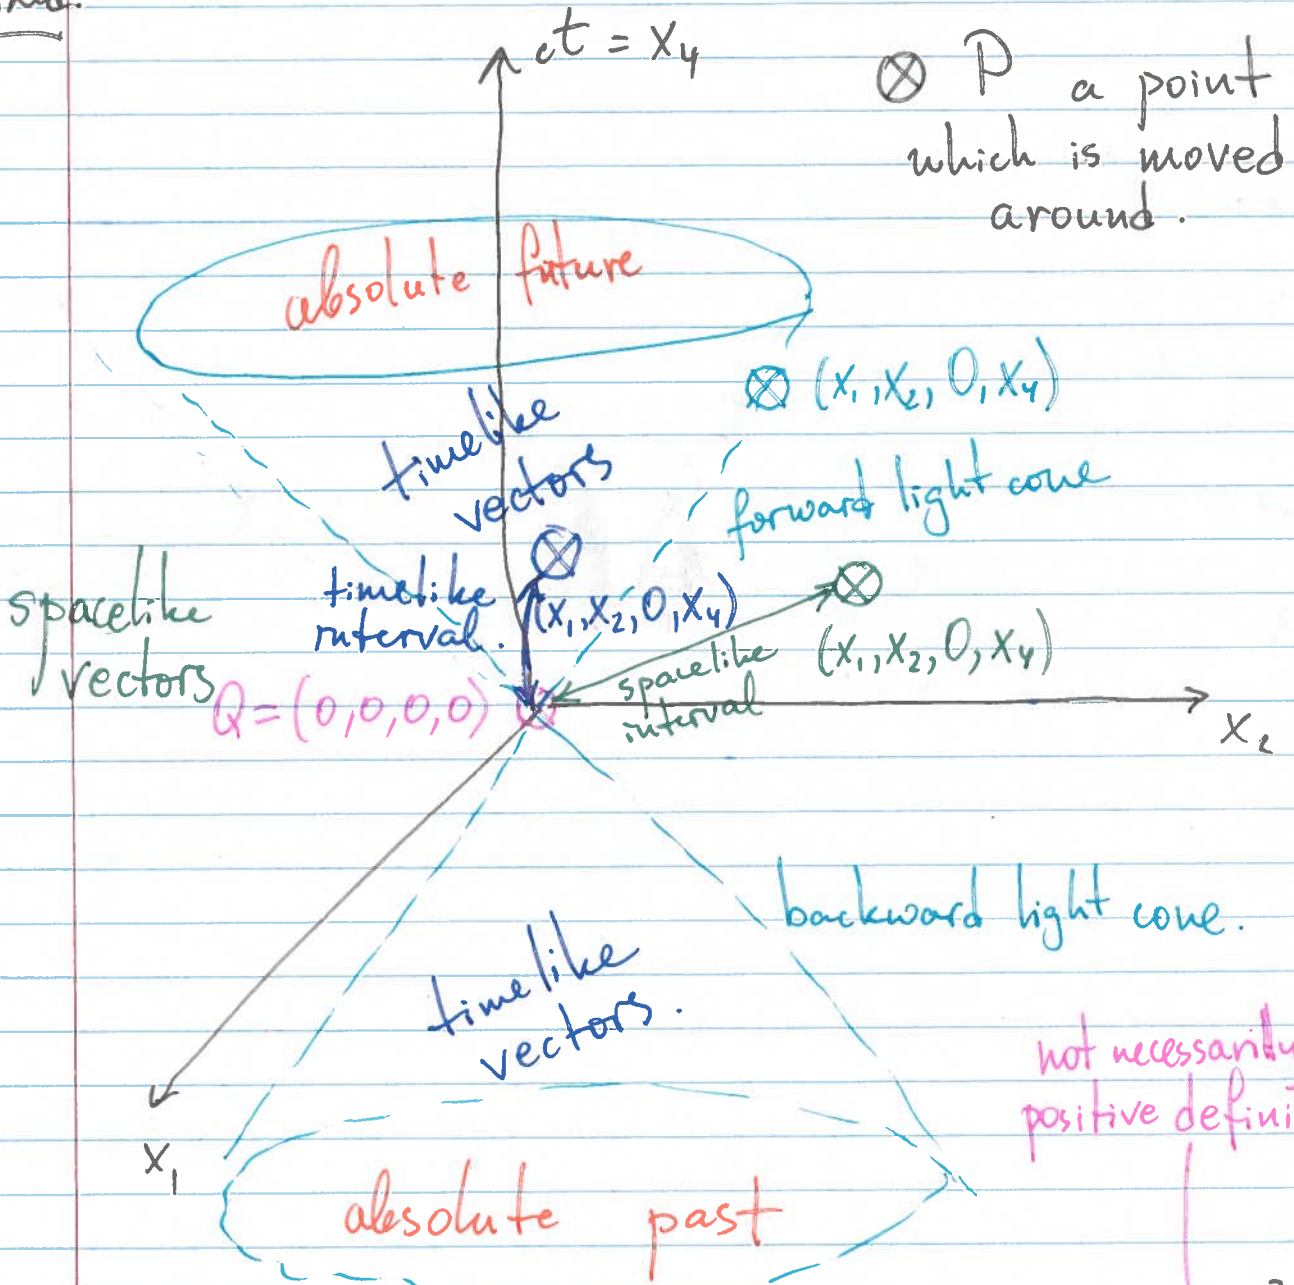 ct = x₄
⊗ P a point
which is moved
around.
absolute future
⊗ (x₁,x₂, 0, x₄)
timelike
vectors
forward light cone
spacelike
vectors
timelike
interval.
(x₁,x₂,0,x₄)
(x₁,x₂,0,x₄)
spacelike
interval
Q=(0,0,0,0)
x₂
backward light cone.
timelike
vectors.
not necessarily
positive defini
x₁
absolute past